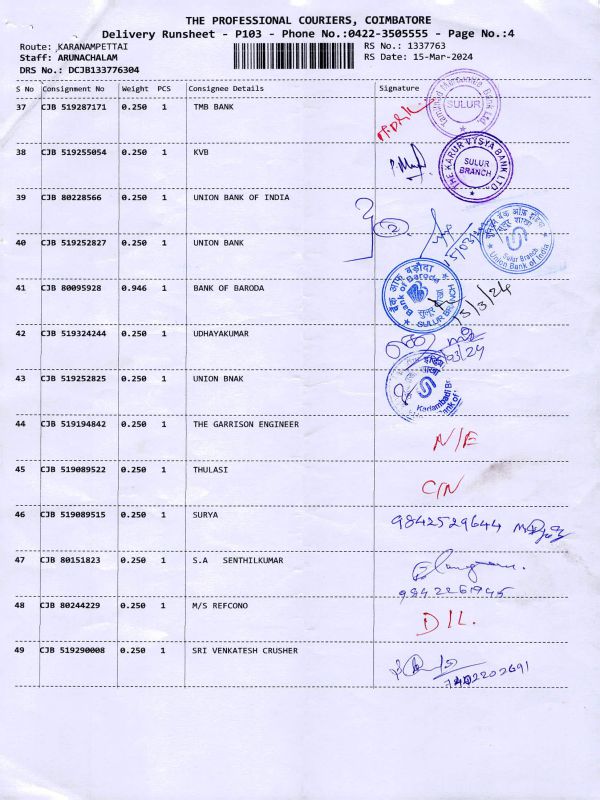 THE PROFESSIONAL COURIERS, COIMBATORE
Delivery Runsheet - P103 - Phone No.:0422-3505555 - Page No.:4
Route: KARANAMPETTAI RS No.: 1337763
Staff: ARUNACHALAM RS Date: 15-Mar-2024
DRS No.: DCJB133776304
S No Consignment No Weight PCS Consignee Details Signature
37 CJB 519287171 0.250 1 TMB BANK
Tamilnad Mercantile Bank Ltd. SULUR
38 CJB 519255054 0.250 1 KVB
THE KARUR VYSYA BANK LTD SULUR BRANCH
39 CJB 80228566 0.250 1 UNION BANK OF INDIA
2
40 CJB 519252827 0.250 1 UNION BANK
15/03/24
यूनियन बैंक ऑफ़ इंडिया सुलूर शाखा Sulur Branch Union Bank of India
41 CJB 80095928 0.946 1 BANK OF BARODA
बैंक ऑफ़ बड़ौदा Bank of Baroda सुलूर शाखा SULUR BRANCH
15/3/24
42 CJB 519324244 0.250 1 UDHAYAKUMAR
03/24
43 CJB 519252825 0.250 1 UNION BNAK
शाखा Kadambadi
44 CJB 519194842 0.250 1 THE GARRISON ENGINEER
N/E
45 CJB 519089522 0.250 1 THULASI
C/N
46 CJB 519089515 0.250 1 SURYA
9842529644
47 CJB 80151823 0.250 1 S.A SENTHILKUMAR
9842261945
48 CJB 80244229 0.250 1 M/S REFCONO
D/L.
49 CJB 519290008 0.250 1 SRI VENKATESH CRUSHER